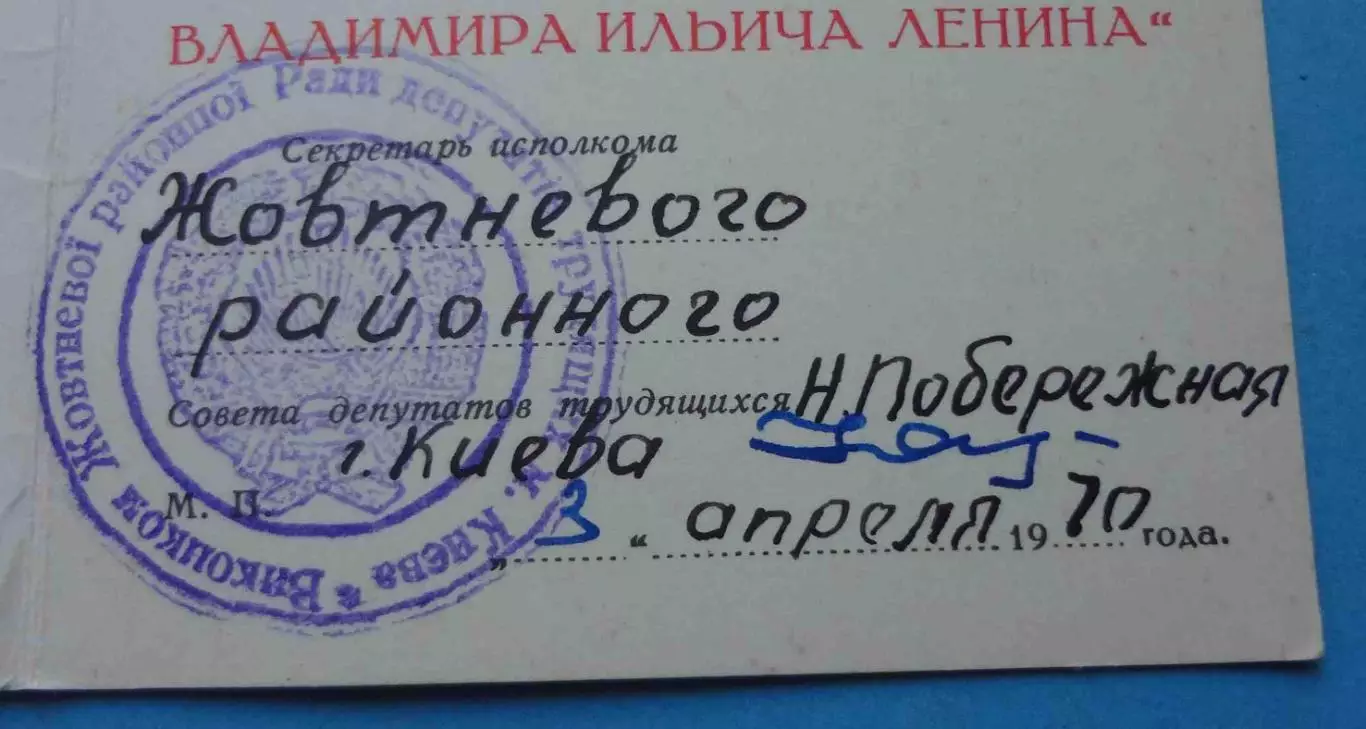 ВЛАДИМИРА ИЛЬИЧА ЛЕНИНА“
Секретарь исполкома
Жовтневого
районного
Совета депутатов трудящихся Н. Побережная
г. Киева
М. П.
„3“ апреля 1970 года.
Виконком Жовтневої районної Ради депутатів трудящих м. Києва *